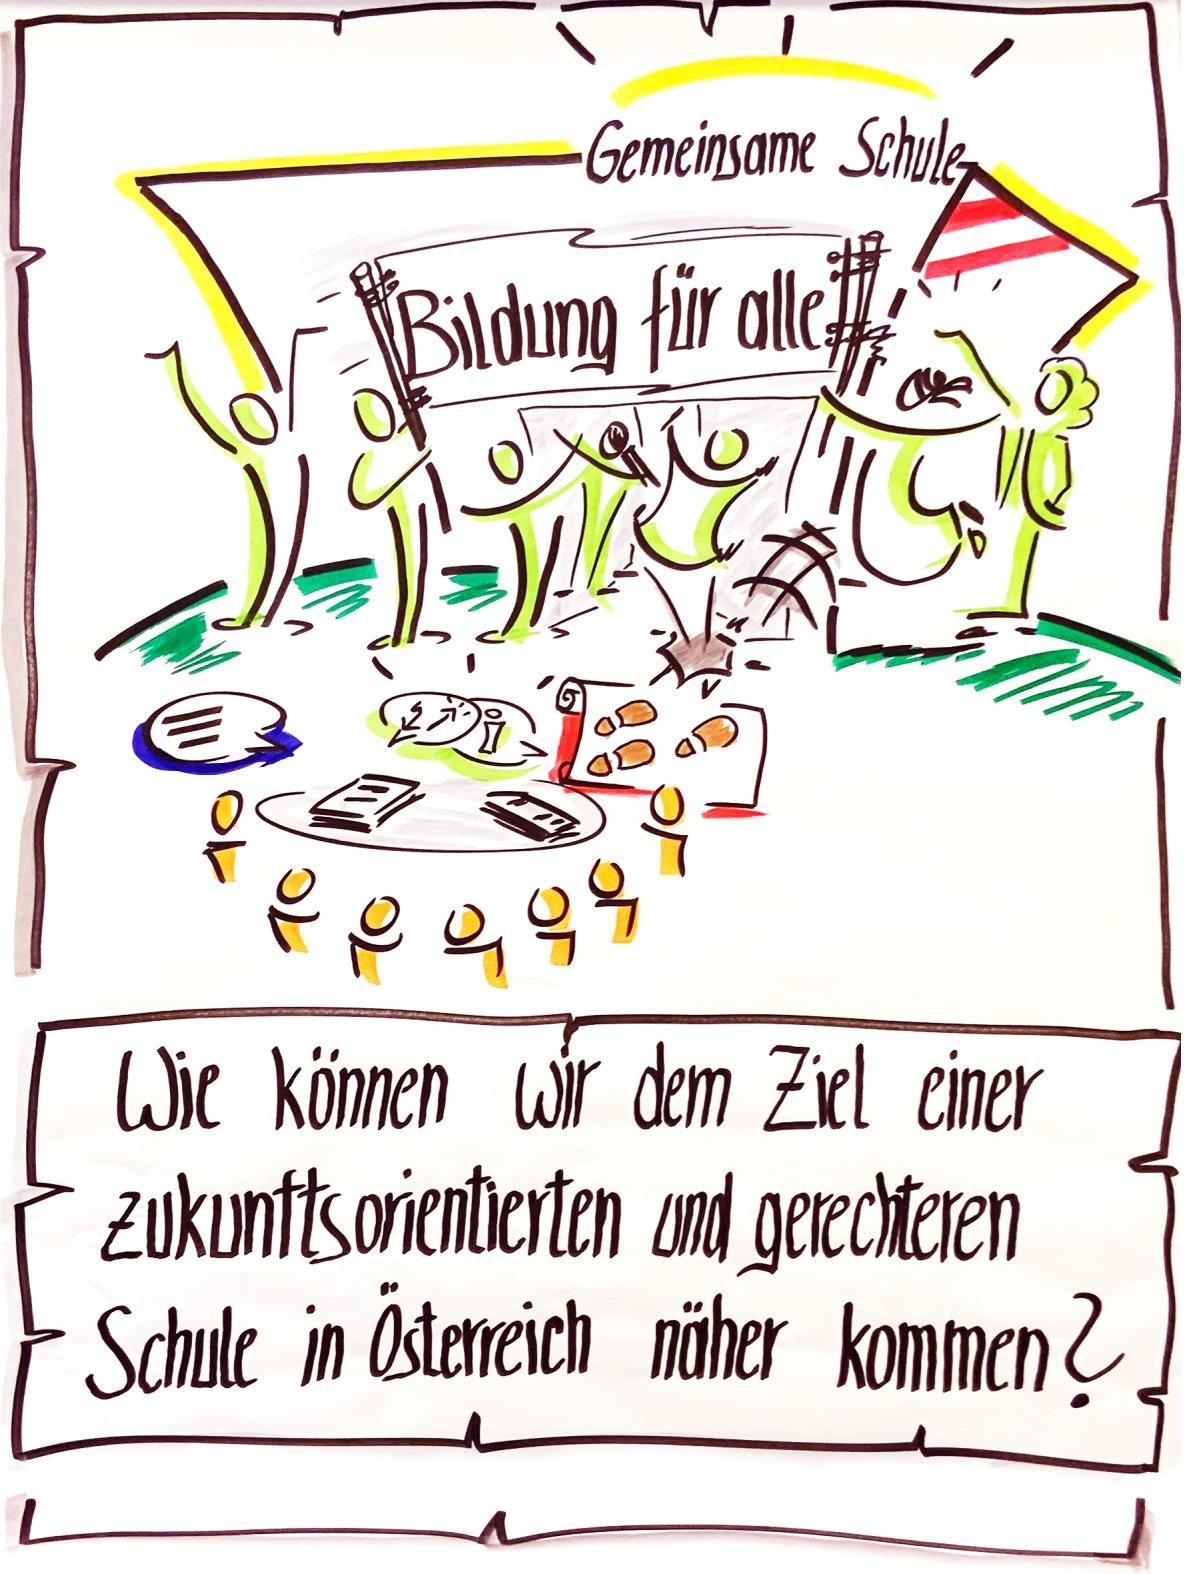 Gemeinsame Schule
Bildung für alle
i
Wie können wir dem Ziel einer
zukunftsorientierten und gerechteren
Schule in Österreich näher kommen?